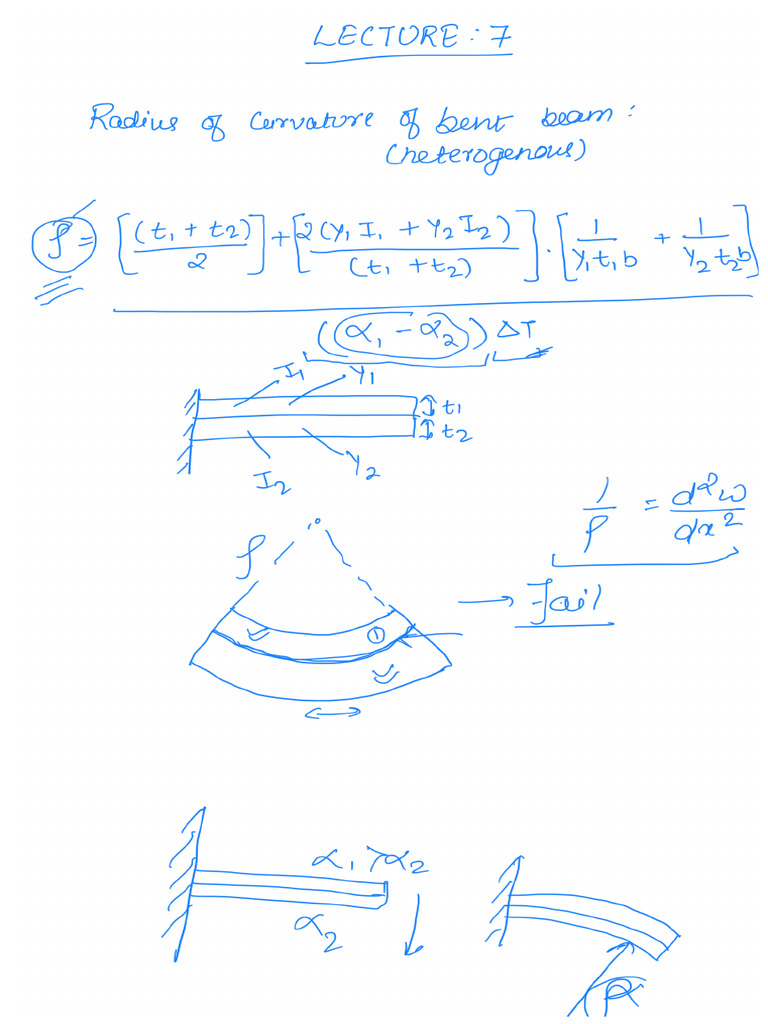 LECTURE : 7
Radius of curvature of bent beam :
(heterogenous)
ρ = [(t₁ + t₂)/2] + [2(Y₁ I₁ + Y₂ I₂)/(t₁ + t₂)] · [1/(Y₁ t₁ b) + 1/(Y₂ t₂ b)]
((α₁ - α₂)) ΔT
I₁ Y₁
t₁
t₂
I₂ Y₂
1/ρ = d²ω/dx²
ρ
①
→ Fail
α₁ > α₂
α₂